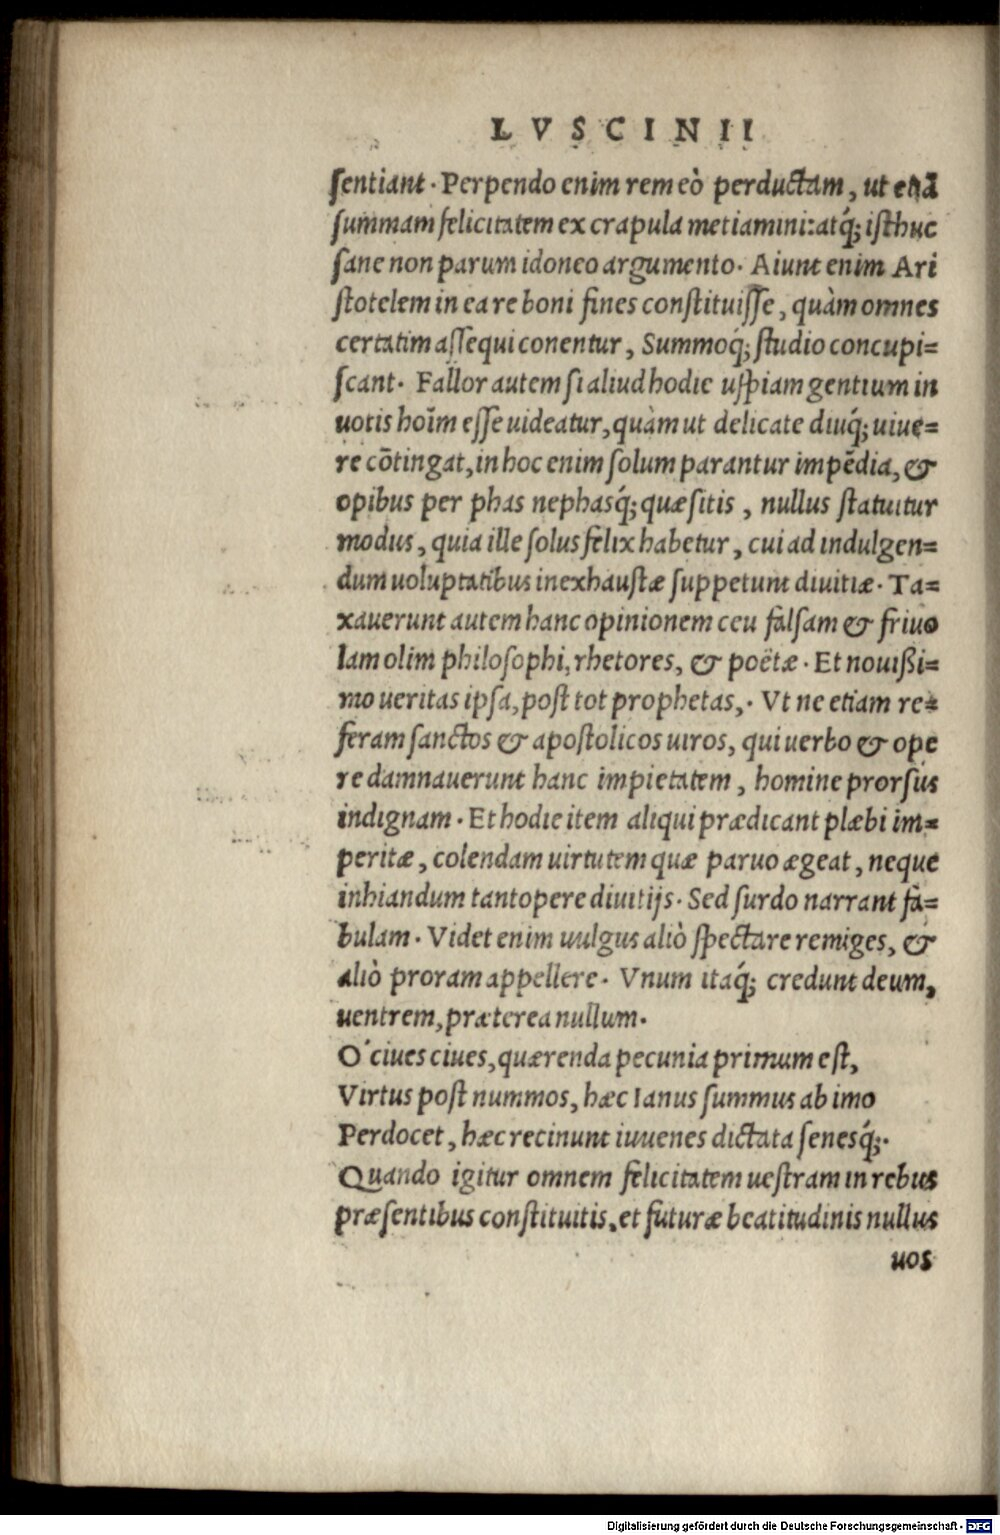 LVSCINII
ſentiant. Perpendo enim rem eò perductam, ut etiā
ſummam felicitatem ex crapula metiamini: atq́; iſthuc
ſane non parum idoneo argumento. Aiunt enim Ari
ſtotelem in ea re boni fines conſtituiſſe, quàm omnes
certatim aſſequi conentur, Summoq́; ſtudio concupi=
ſcant. Fallor autem ſi aliud hodie uſpiam gentium in
uotis hoīm eſſe uideatur, quàm ut delicate diuq́; uiue=
re cōtingat, in hoc enim ſolum parantur impēdia, &
opibus per phas nephasq́; quæſitis, nullus ſtatuitur
modus, quia ille ſolus felix habetur, cui ad indulgen=
dum uoluptatibus inexhauſtæ ſuppetunt diuitiæ. Ta=
xauerunt autem hanc opinionem ceu falſam & friuo
lam olim philoſophi, rhetores, & poëtæ. Et nouißi=
mo ueritas ipſa, poſt tot prophetas,. Vt ne etiam re=
feram ſanctos & apoſtolicos uiros, qui uerbo & ope
re damnauerunt hanc impietatem, homine prorſus
indignam. Et hodie item aliqui prædicant plæbi im=
peritæ, colendam uirtutem quæ paruo ægeat, neque
inhiandum tantopere diuitijs. Sed ſurdo narrant fa=
bulam. Videt enim uulgus aliò ſpectare remiges, &
aliò proram appellere. Vnum itaq́; credunt deum,
uentrem, præterea nullum.
O' ciues ciues, quærenda pecunia primum eſt,
Virtus poſt nummos, hæc Ianus ſummus ab imo
Perdocet, hæc recinunt iuuenes dictata ſenesq́;.
Quando igitur omnem felicitatem ueſtram in rebus
præſentibus conſtituitis, et futuræ beatitudinis nullus
uos
Digitalisierung gefördert durch die Deutsche Forschungsgemeinschaft - DFG